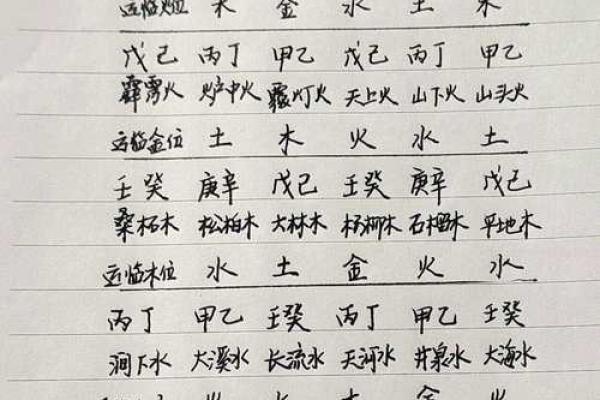 木 金 水 土 木
戊己 丙丁 甲乙 戊己 丙丁 甲乙
霹雳火 炉中火 覆灯火 天上火 山下火 山头火
运临金位 土 木 火 水 土
壬癸 庚辛 戊己 壬癸 庚辛 戊己
桑柘木 松柏木 大林木 杨柳木 石榴木 平地木
运临木位 水 土 金 火 水
丙丁 甲乙 壬癸 丙丁 甲乙 壬癸
涧下水 大溪水 长流水 天河水 井泉水 大海水